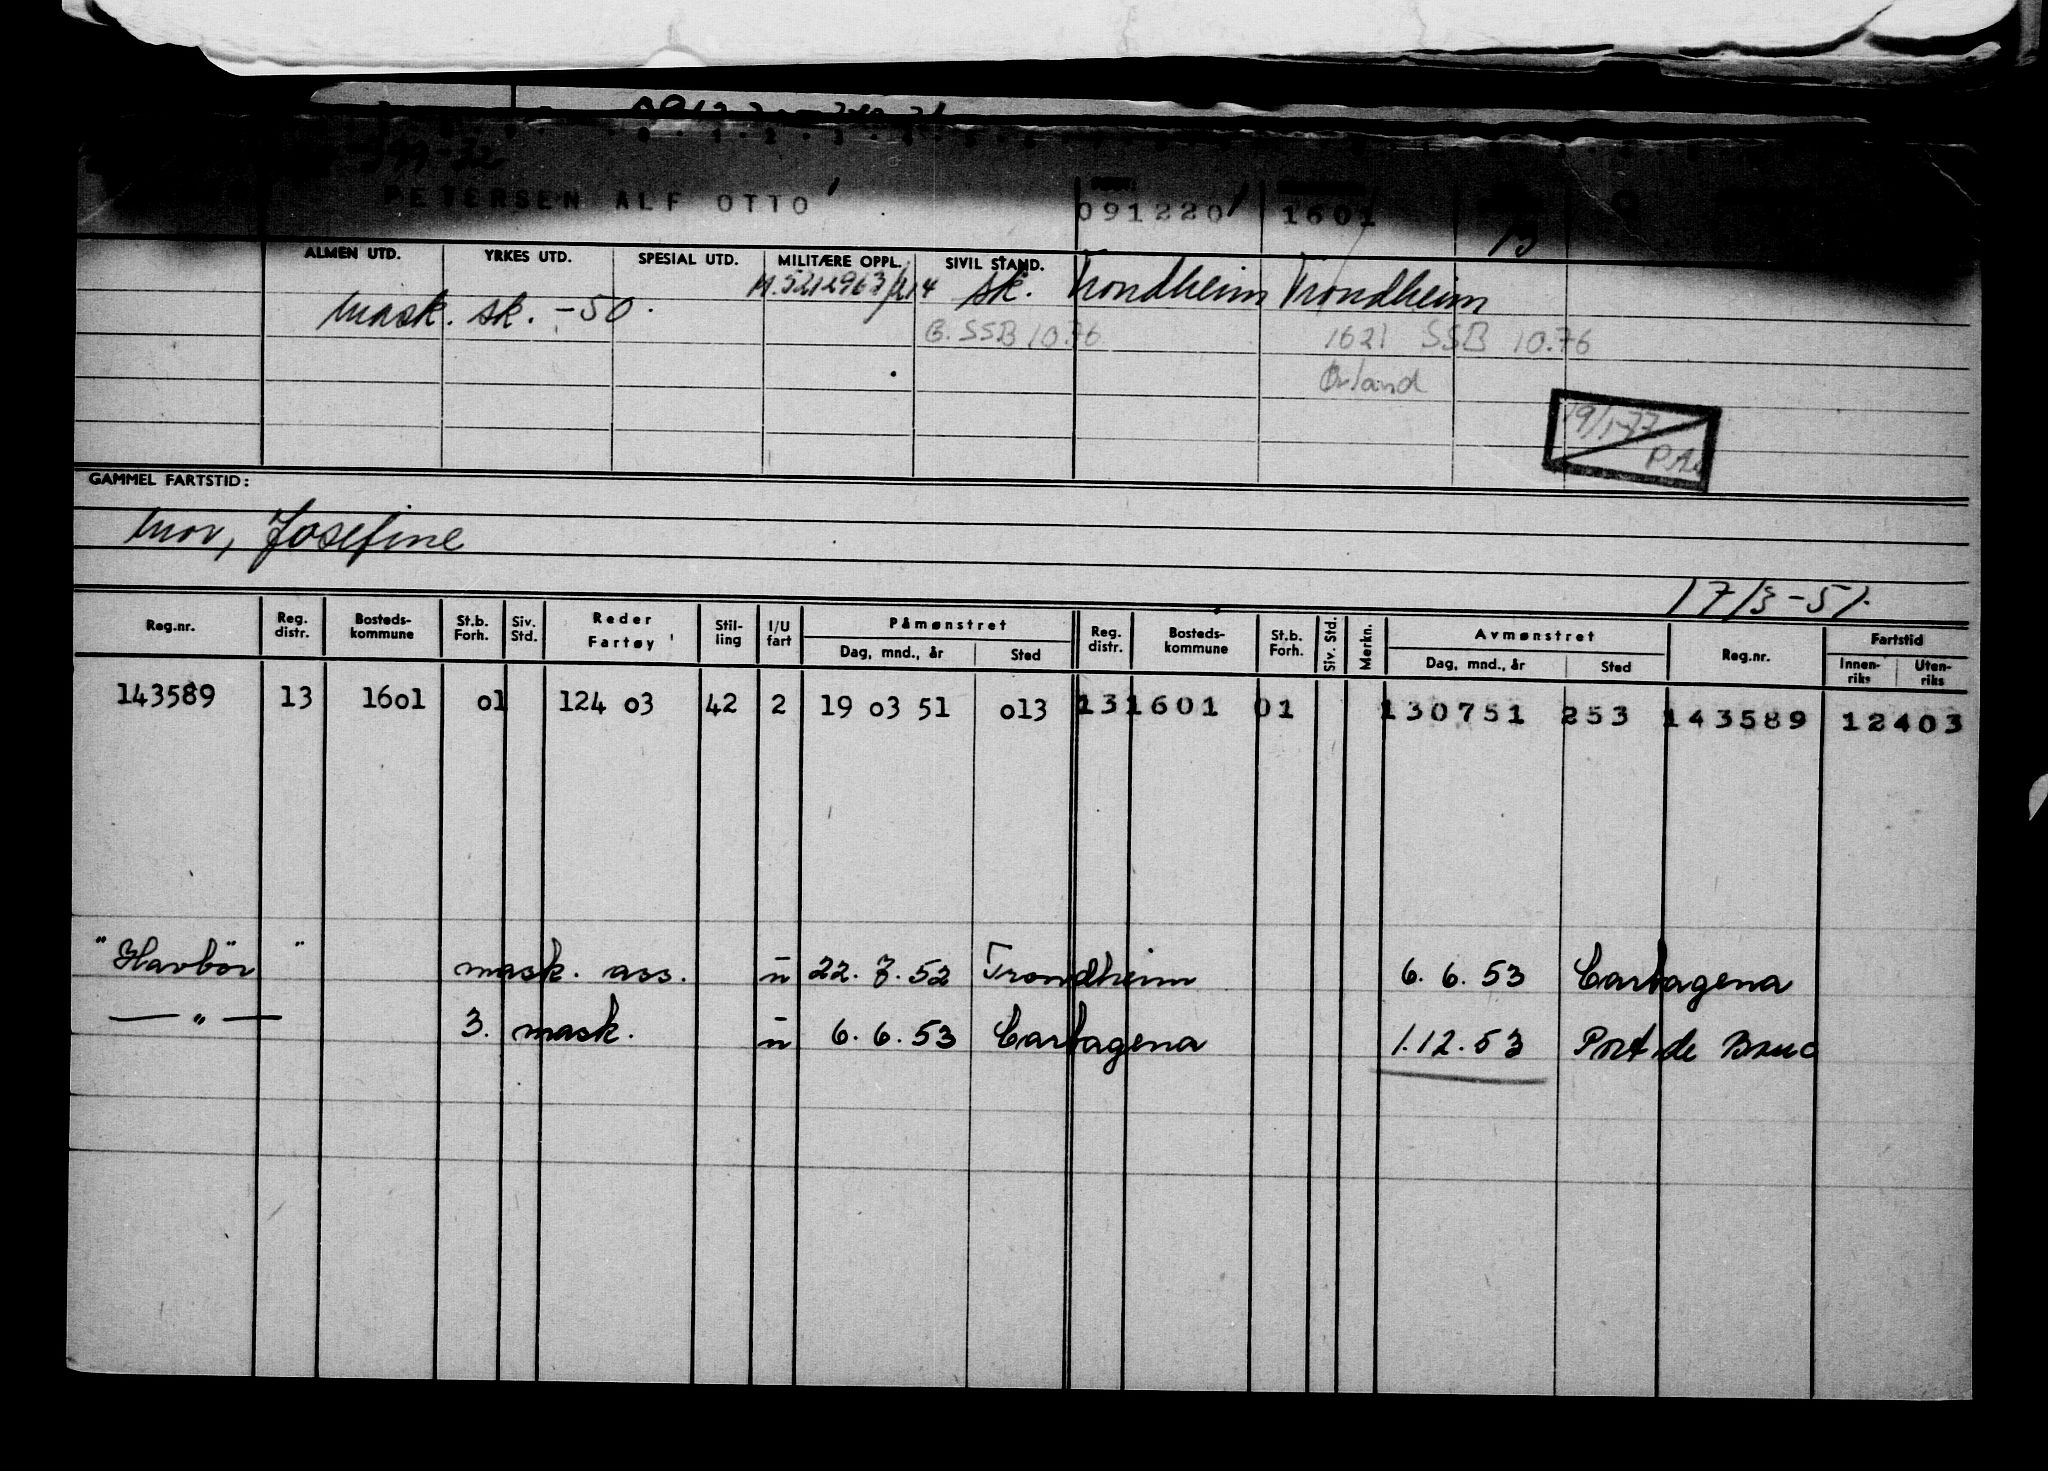 -32
PETERSEN ALF OTTO 091220 1601 13
ALMEN UTD. YRKES UTD. SPESIAL UTD. MILITÆRE OPPL. SIVIL STAND.
M.5212963/214 sk. Trondheim Trondheim
Mask. sk. -50.
G. SSB 10.76 1621 SSB 10.76
Ørland
19/1-77
GAMMEL FARTSTID:
Mor, Josefine
17/3-51.
Reg.nr. Reg. distr. Bosteds-kommune St.b. Forh. Siv. Std. Reder Fartøy Stil-ling I/U fart Påmønstret Dag, mnd., år Sted Reg. distr. Bosteds-kommune St.b. Forh. Siv. Std. Merkn. Avmønstret Dag, mnd., år Sted Reg.nr. Fartstid Innen-riks Uten-riks
143589 13 1601 01 124 03 42 2 19 03 51 013 13 1601 01 130751 253 143589 12403
"Havbör" mask. ass. u 22. 7. 52 Trondheim 6. 6. 53 Cartagena
— " — 3. mask. u 6. 6. 53 Cartagena 1.12.53 Port de Bouc